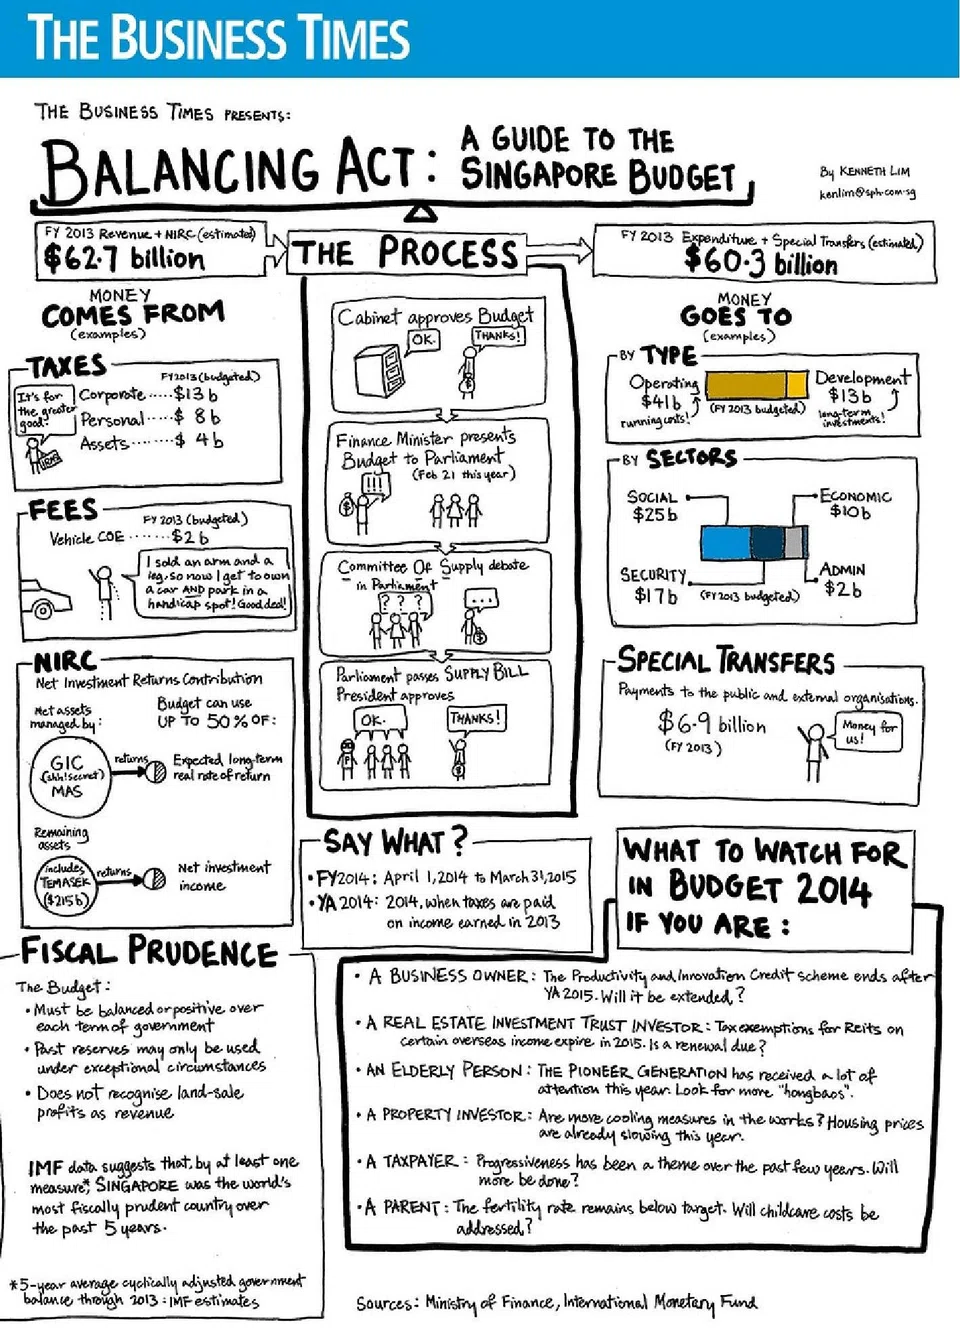 THE BUSINESS TIMES
THE BUSINESS TIMES PRESENTS:
BALANCING ACT: A GUIDE TO THE
SINGAPORE BUDGET
By KENNETH LIM
kenlim@sph.com.sg
FY 2013 Revenue + NIRC (estimated)
$62.7 billion
THE PROCESS
FY 2013 Expenditure + Special Transfers (estimated)
$60.3 billion
MONEY
COMES FROM
(examples)
TAXES
FY2013 (budgeted)
It's for
the greater
good!
Corporate ..... $13 b
Personal ..... $ 8 b
Assets ....... $ 4 b
FEES
FY 2013 (budgeted)
Vehicle COE ....... $2 b
I sold an arm and a
leg, so now I get to own
a car AND park in a
handicap spot! Good deal!
NIRC
Net Investment Returns Contribution
Net assets
managed by:
Budget can use
UP TO 50% OF:
GIC
(shh! secret)
MAS
returns
Expected long-term
real rate of return
Remaining
assets
includes
TEMASEK
($215b)
returns
Net investment
income
FISCAL PRUDENCE
The Budget:
• Must be balanced or positive over
each term of government
• Past reserves may only be used
under exceptional circumstances
• Does not recognise land-sale
profits as revenue
IMF data suggests that, by at least one
measure*, SINGAPORE was the world's
most fiscally prudent country over
the past 5 years.
*5-year average cyclically adjusted government
balance through 2013: IMF estimates
Cabinet approves Budget
OK.
THANKS!
Finance Minister presents
Budget to Parliament
(Feb 21 this year)
!!!
Committee Of Supply debate
in Parliament
? ? ?
...
Parliament passes SUPPLY BILL
President approves
OK.
THANKS!
P
SAY WHAT?
• FY2014: April 1, 2014 to March 31, 2015
• YA 2014: 2014, when taxes are paid
on income earned in 2013
MONEY
GOES TO
(examples)
BY TYPE
Operating
$41b
running costs!
(FY 2013 budgeted)
Development
$13b
long-term
investments!
BY SECTORS
SOCIAL
$25b
ECONOMIC
$10b
SECURITY
$17b
(FY 2013 budgeted)
ADMIN
$2b
SPECIAL TRANSFERS
Payments to the public and external organisations.
$6.9 billion
(FY 2013)
Money for
us!
WHAT TO WATCH FOR
IN BUDGET 2014
IF YOU ARE:
• A BUSINESS OWNER: The Productivity and Innovation Credit scheme ends after
YA 2015. Will it be extended?
• A REAL ESTATE INVESTMENT TRUST INVESTOR: Tax exemptions for Reits on
certain overseas income expire in 2015. Is a renewal due?
• AN ELDERLY PERSON: THE PIONEER GENERATION has received a lot of
attention this year. Look for more "hongbaos".
• A PROPERTY INVESTOR: Are more cooling measures in the works? Housing prices
are already slowing this year.
• A TAXPAYER: Progressiveness has been a theme over the past few years. Will
more be done?
• A PARENT: The fertility rate remains below target. Will childcare costs be
addressed?
Sources: Ministry of Finance, International Monetary Fund